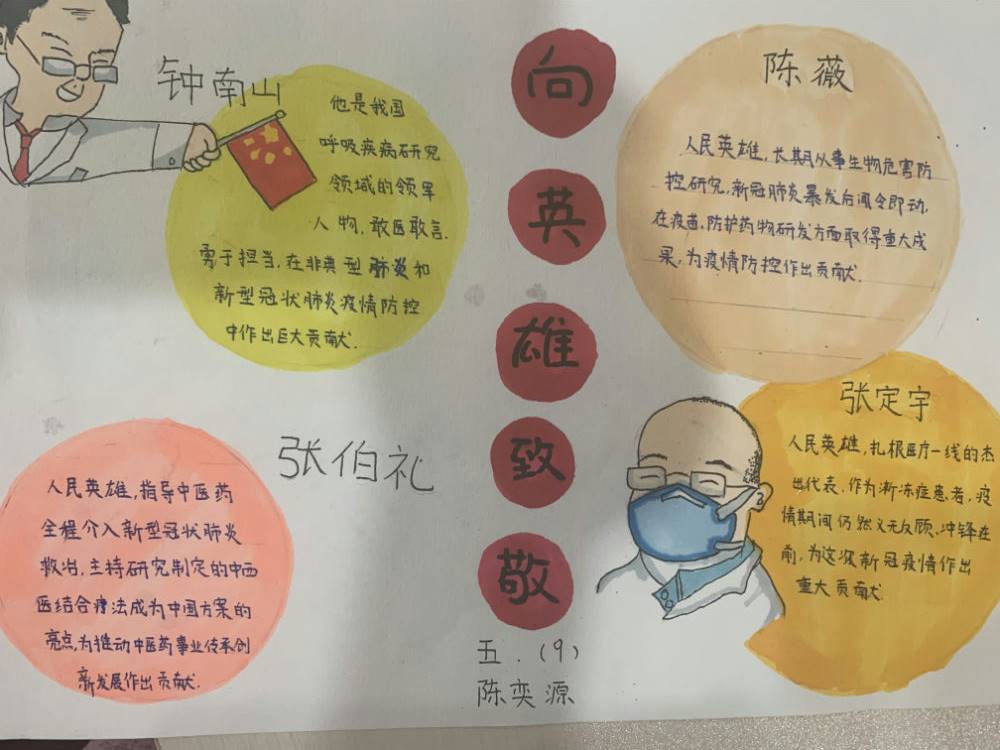 钟南山
他是我国
呼吸疾病研究
领域的领军
人物,敢医敢言.
勇于担当,在非典型肺炎和
新型冠状肺炎疫情防控
中作出巨大贡献.
向
英
雄
致
敬
五.(9)
陈奕源
陈薇
人民英雄,长期从事生物危害防
控研究,新冠肺炎暴发后闻令即动,
在疫苗,防护药物研发方面取得重大成
果,为疫情防控作出贡献.
张伯礼
人民英雄,指导中医药
全程介入新型冠状肺炎
救治,主持研究制定的中西
医结合疗法成为中国方案的
亮点,为推动中医药事业传承创
新发展作出贡献.
张定宇
人民英雄,扎根医疗一线的杰
出代表,作为渐冻症患者,疫
情期间仍然义无反顾,冲锋在
前,为这次新冠疫情作出
重大贡献.